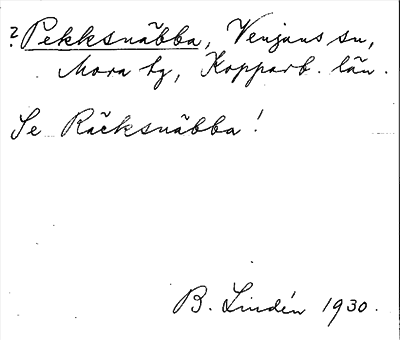 ? Pekksnäbba, Venjans sn,
Mora tg, Kopparb. län.
Se Räcksnäbba!
B. Lindén 1930.